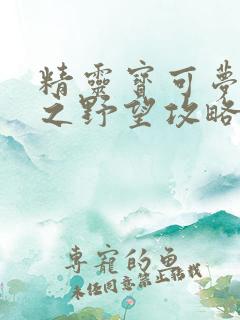 精靈寶可夢
之野望攻略
專寵的魚
未経同意禁止転載